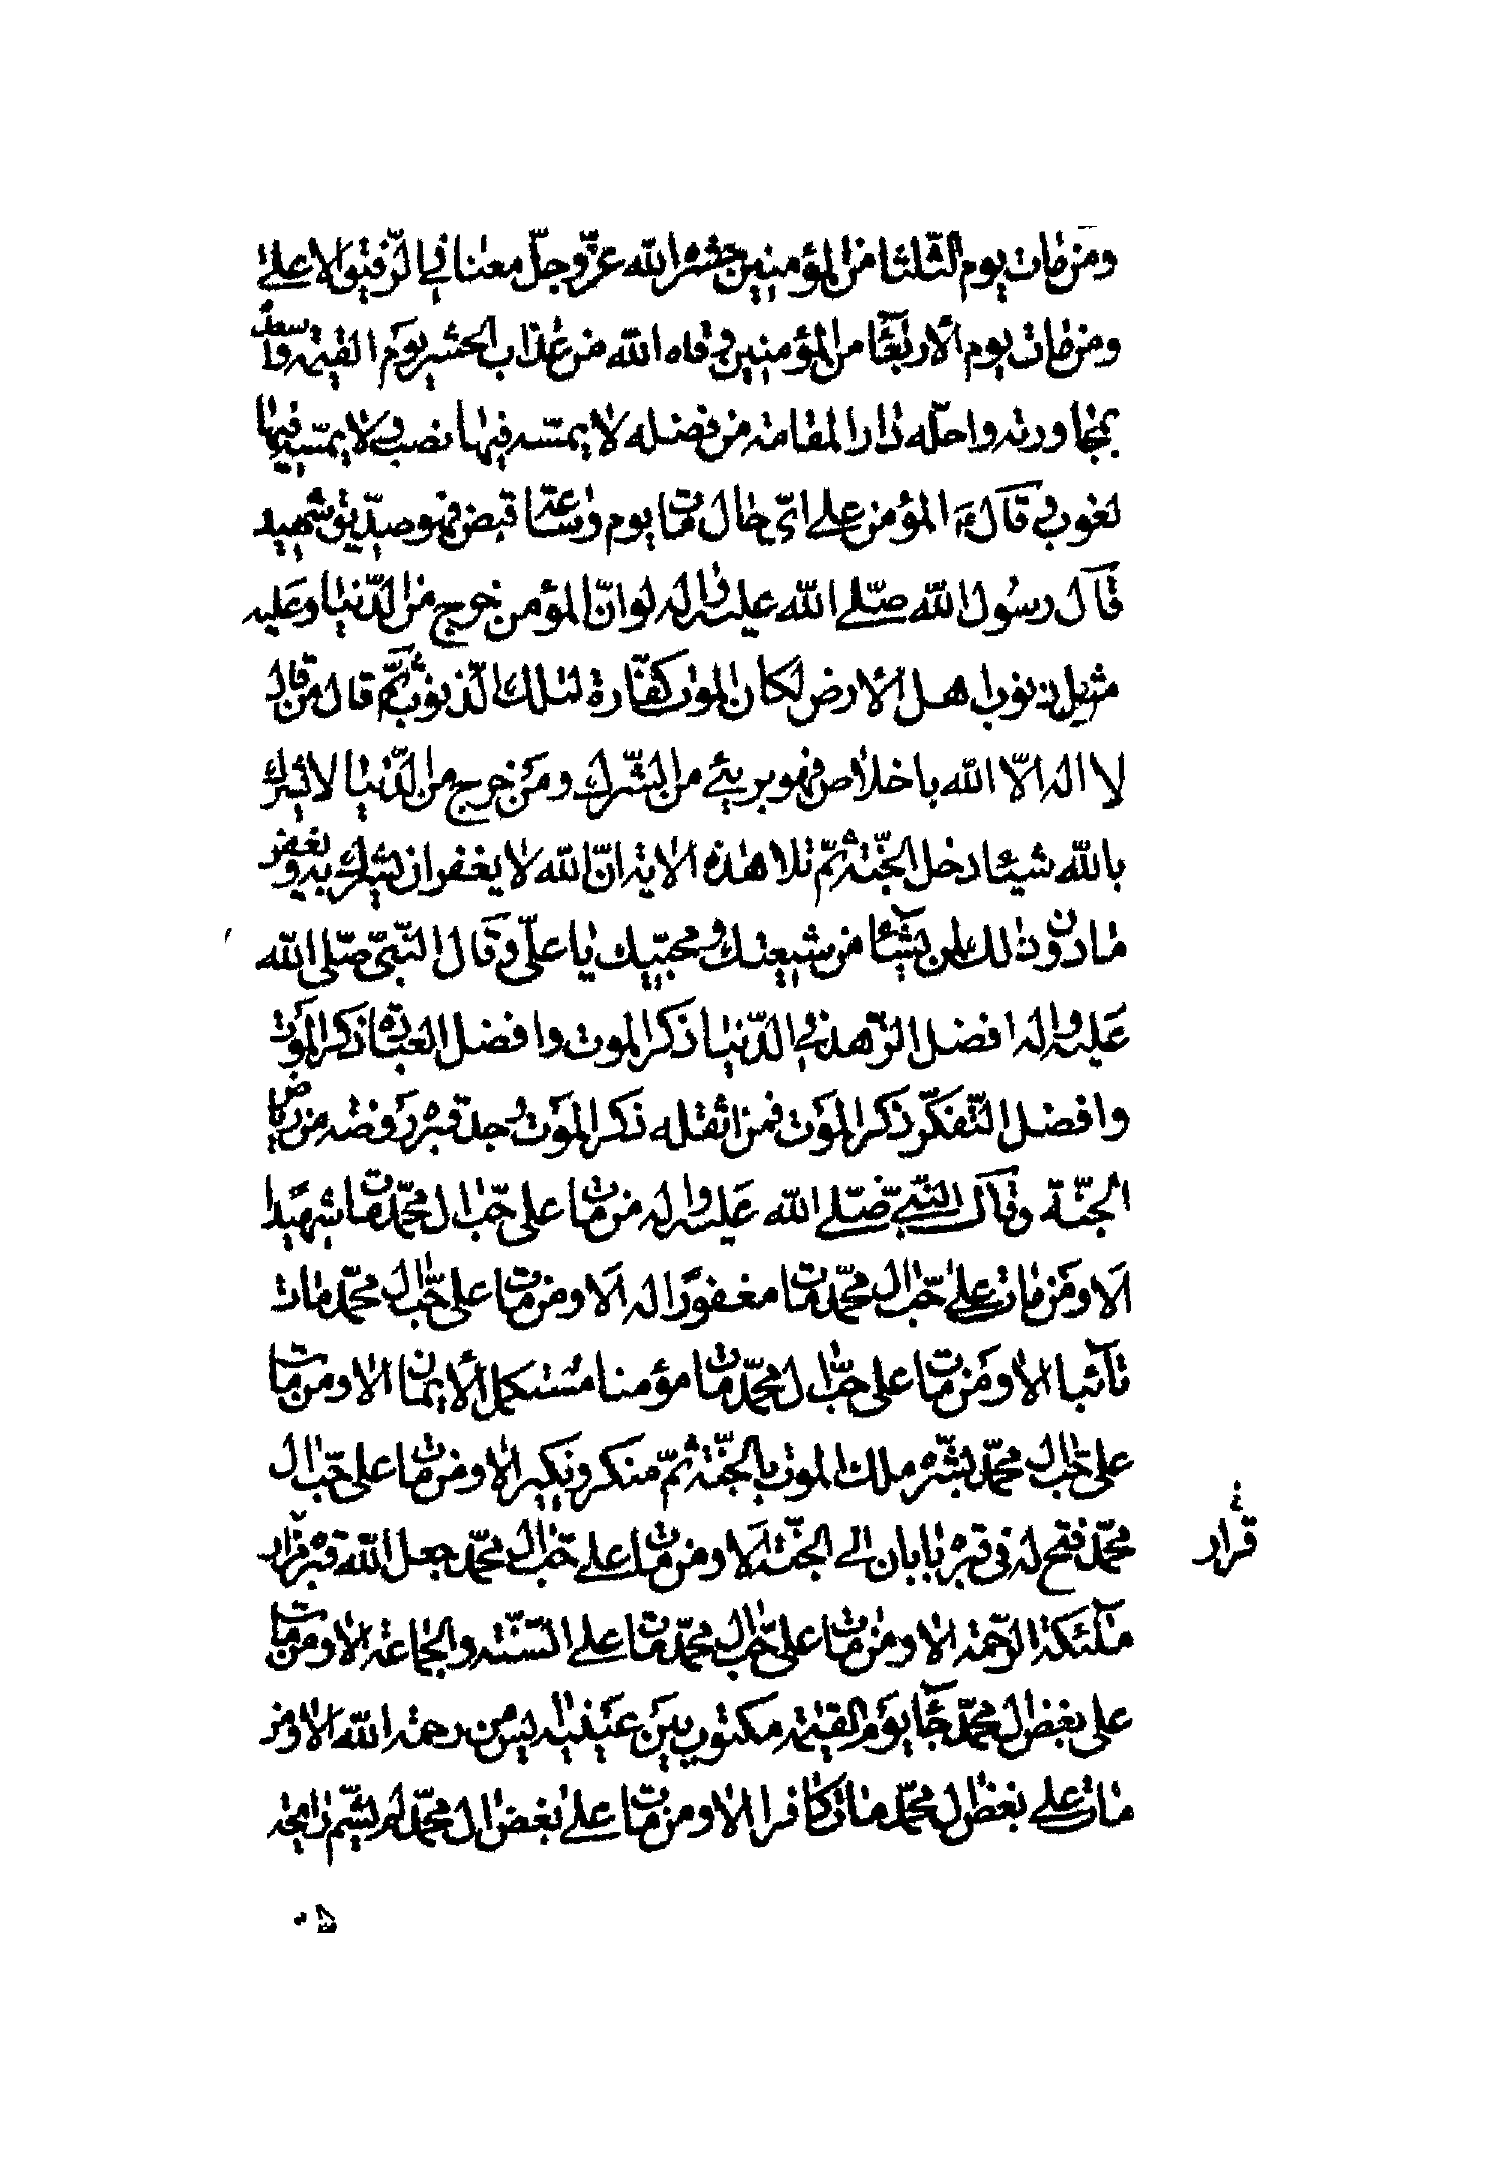 ومن مات يوم الثلثا من المؤمنين حشره الله عزّ وجلّ معنا في الرّفيق الاعلى
ومن مات يوم الاربعآء من المؤمنين وقاه الله من عذاب الحشر يوم القيمة واسعده
بمجاورته واحلّه دار المقامة من فضله لا يمسّه فيها نصب لا يمسّه فيها
لغوب قال ع المؤمن على ايّ حال مات يوم وساعة قبض فهو صدّيق شهيد
قال رسول الله صلّى الله عليه واله لو انّ المؤمن خرج من الدّنيا وعليه
مثل ذنوب اهل الارض لكان الموت كفّارة لتلك الذنوب ثمّ قال من قال
لا اله الّا الله باخلاص فهو بريئ من الشّرك ومن خرج من الدّنيا لا يشرك
بالله شيئا دخل الجنّة ثمّ تلا هذه الاية انّ الله لا يغفر ان يشرك به ويغفر
ما دون ذلك لمن يشآء من شيعتك ومحبّيك يا علىّ وقال النّبىّ صلّى الله
عليه واله افضل الزّهد في الدّنيا ذكر الموت وافضل العبادة ذكر الموت
وافضل التّفكّر ذكر الموت فمن اثقله ذكر الموت وجد قبره روضة من رياض
الجنّة وقال النّبي صلّى الله عليه واله من مات على حبّ ال محمّد مات شهيدا
الا ومن مات على حبّ ال محمّد مات مغفورًا له الا ومن مات على حبّ ال محمّد مات
تآئبا الا ومن مات على حبّ ال محمّد مات مؤمنا مستكمل الأيمان الا ومن مات
على حبّ ال محمّد بشّره ملك الموت بالجنّة ثمّ منكر ونكير الا ومن مات على حبّ ال
محمّد فتح له في قبره بابان الى الجنّة الا ومن مات على حبّ ال محمّد جعل الله قبره مزار
قرار
ملآئكة الرّحمة الا ومن مات على حبّ ال محمّد مات على السّنّة والجماعة الا ومن مات
على بغض ال محمّد جآء يوم القيمة مكتوب بين عينيه ايس من رحمة الله الا ومن
مات على بغض ال محمّد مات كافرا الا ومن مات على بغض ال محمّد لم يشمّ رائحة